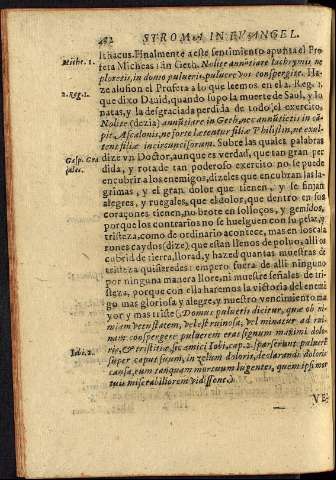 482 STROMA IN EVANGEL.
Ithacus. Finalmente a este sentimiento apunta el Pro
Miche. 1. feta Micheas: in Geth. Nolite annūtiare lachrymis ne
ploretis, in domo pulueris puluere vos conspergite. Ha-
ze alusion el Profeta a lo que leemos en el 2. Reg. 1.
2. Reg. 1. que dixo Dauid, quando supo la muerte de Saul, y Io
natas, y la desgraciada perdida de todo el exercito,
Nolite (dezia) annūtiare in Geth, nec annūtietis in cō
pitis Ascalonis, ne forte letentur filiæ Philistin, ne exul-
tent filiæ incircuncisorum. Sobre las quales palabras
Gasp. dize vn Doctor, aunque es verdad, que tan gran per
dida, y rota de tan poderoso exercito no se puede
encubrir a los enemigos, dizeles que encubran las la-
grimas, y el gran dolor que tienen, y se finjan
alegres, y ruegales, que el dolor, que dentro en sus
coraçones tienen, no brote en solloços, y gemidos,
porque los contrarios no se huelguen con su pesar, y
tristeza, como de ordinario acontece, mas en los cala
rones caydos (dize) que estàn llenos de poluo, alli os
cubrid de tierra, llorad, y hazed quantas muestras de
tristeza quisieredes: empero fuera de alli ninguno
por ninguna manera llore, ni muestre señales de tri-
steza, porque con ella haremos la victoria del enemi
go mas gloriosa y alegre, y nuestro vencimiento ma
yor y mas triste (Domus pulueris dicitur, quæ ob ni-
miam vetustatem, vel est ruinosa, vel minatur ad rui-
nam conspergere puluerem erat signum maximi dolo-
Iobi. 2. ris, & tristitiæ, sic amici Iobi, cap. 2. sparserunt puluerē
super caput suum, in zelum doloris, declarandi doloris
causa, eum tanquam mortuum lugentes, quem ipsi mor
tuū miserabiliorem vidissent.)
VE-